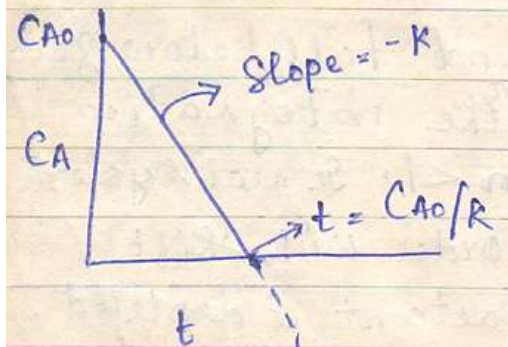 CAO
Slope = -K
CA
t = CAO/K
t